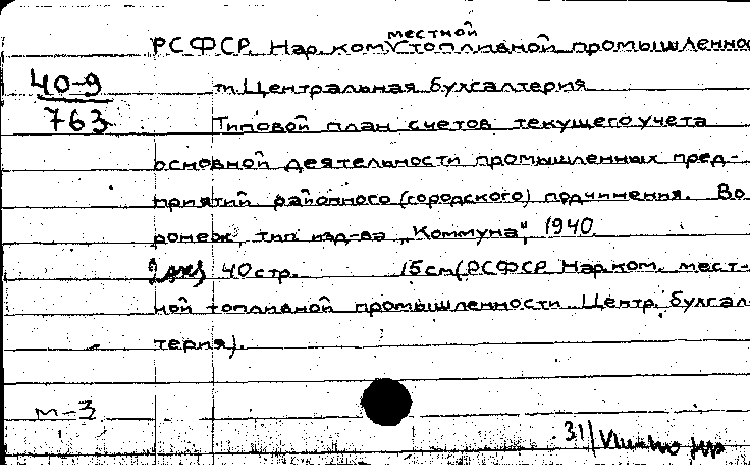 РСФСР. Нар. ком. местной топливной промышленно
т. Центральная бухгалтерия
40-9
763
Типовой план счетов текущего учета
основной деятельности промышленных пред-
приятий районного (городского) подчинения. Во
ронеж, тип. изд-ва "Коммуна", 1940.
40 стр. 15 см (РСФСР Нар.ком. мест-
ной топливной промышленности. Центр. бухгал-
терия).
м-3
31/